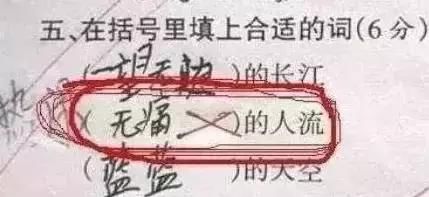 五、在括号里填上合适的词(6分)
(一望无)的长江
(无痛)的人流
(蓝蓝)的天空